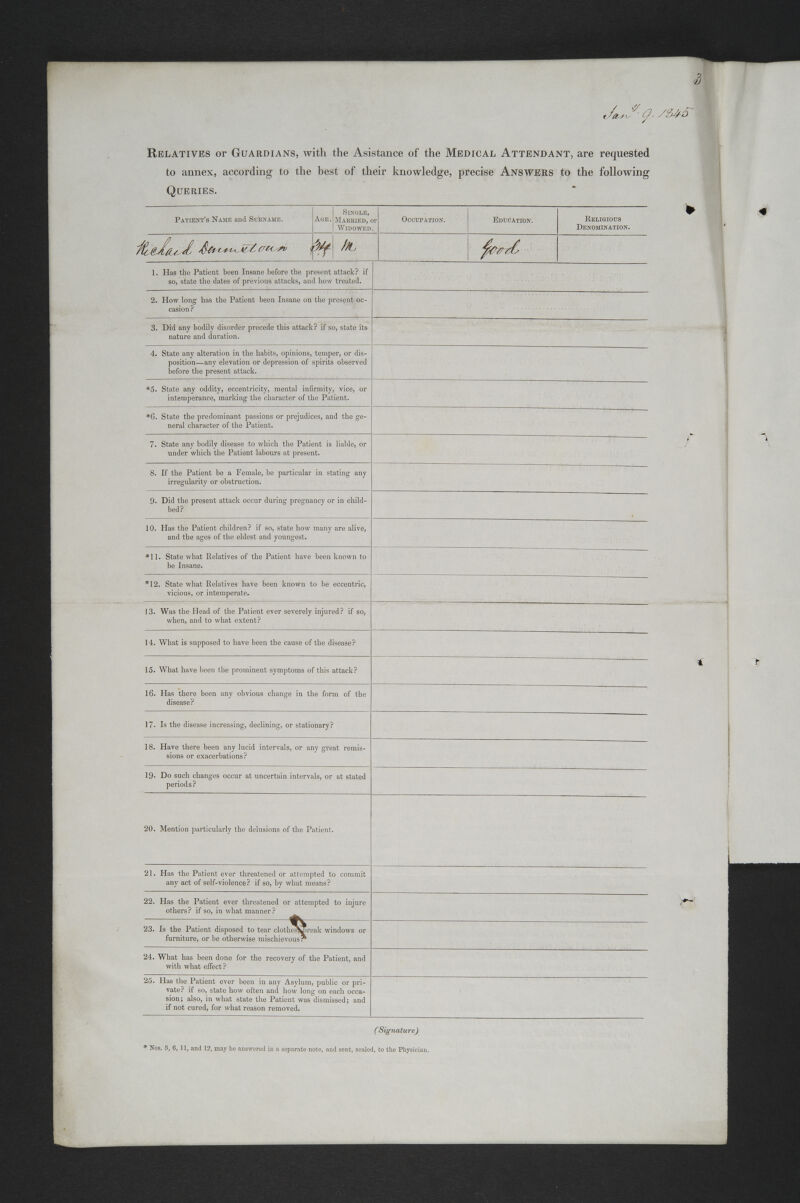 3
Jany 9. 1845
RELATIVES or GUARDIANS, with the Asistance of the MEDICAL ATTENDANT, are requested
to annex, according to the best of their knowledge, precise ANSWERS to the following
QUERIES.
PATIENT'S NAME and SURNAME. AGE. SINGLE, MARRIED, or WIDOWED. OCCUPATION. EDUCATION. RELIGIOUS DENOMINATION.
Richard Dennistoun M Good
1. Has the Patient been Insane before the present attack? if
so, state the dates of previous attacks, and how treated.
2. How long has the Patient been Insane on the present oc-
casion?
3. Did any bodily disorder precede this attack? if so, state its
nature and duration.
4. State any alteration in the habits, opinions, temper, or dis-
position—any elevation or depression of spirits observed
before the present attack.
*5. State any oddity, eccentricity, mental infirmity, vice, or
intemperance, marking the character of the Patient.
*6. State the predominant passions or prejudices, and the ge-
neral character of the Patient.
7. State any bodily disease to which the Patient is liable, or
under which the Patient labours at present.
8. If the Patient be a Female, be particular in stating any
irregularity or obstruction.
9. Did the present attack occur during pregnancy or in child-
bed?
10. Has the Patient children? if so, state how many are alive,
and the ages of the eldest and youngest.
*11. State what Relatives of the Patient have been known to
be Insane.
*12. State what Relatives have been known to be eccentric,
vicious, or intemperate.
13. Was the Head of the Patient ever severely injured? if so,
when, and to what extent?
14. What is supposed to have been the cause of the disease?
15. What have been the prominent symptoms of this attack?
16. Has there been any obvious change in the form of the
disease?
17. Is the disease increasing, declining, or stationary?
18. Have there been any lucid intervals, or any great remis-
sions or exacerbations?
19. Do such changes occur at uncertain intervals, or at stated
periods?
20. Mention particularly the delusions of the Patient.
21. Has the Patient ever threatened or attempted to commit
any act of self-violence? if so, by what means?
22. Has the Patient ever threatened or attempted to injure
others? if so, in what manner?
23. Is the Patient disposed to tear clothes, break windows or
furniture, or be otherwise mischievous?
24. What has been done for the recovery of the Patient, and
with what effect?
25. Has the Patient ever been in any Asylum, public or pri-
vate? if so, state how often and how long on each occa-
sion; also, in what state the Patient was dismissed; and
if not cured, for what reason removed.
(Signature)
* Nos. 5, 6, 11, and 12, may be answered in a separate note, and sent, sealed, to the Physician.